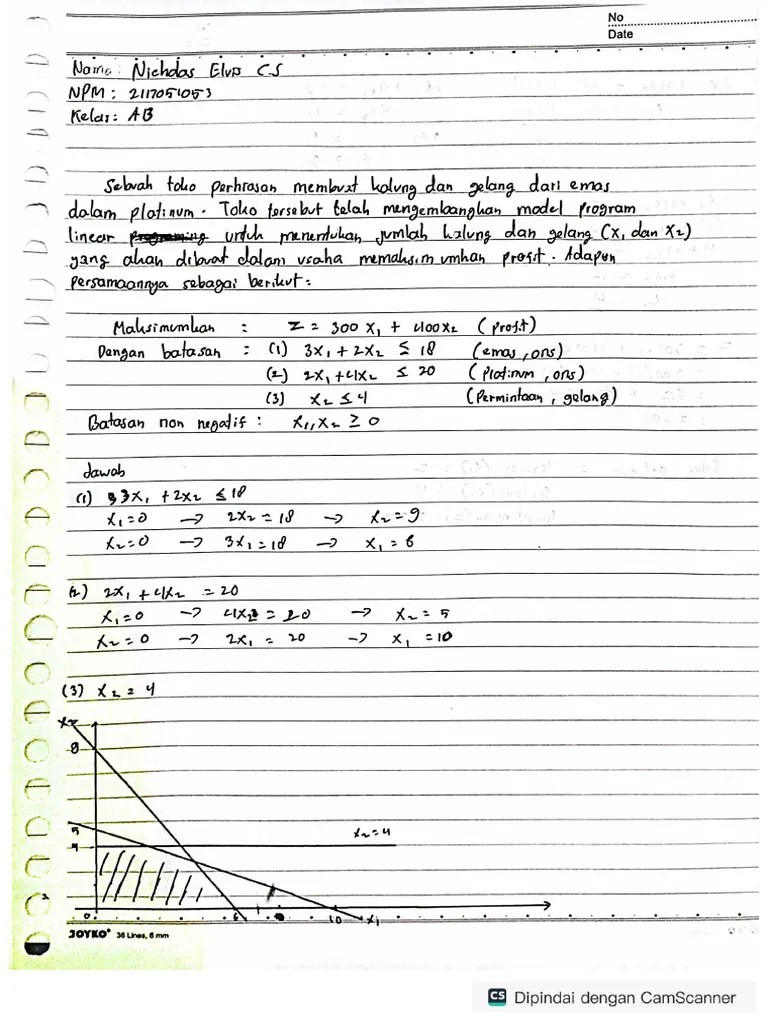 No
Date
Nama : Nicholas Elvo CS
NPM : 2117051053
Kelas : AB
Sebuah toko perhiasan membuat kalung dan gelang dari emas
dalam platinum. Toko tersebut telah mengembangkan model program
linear untuk menentukan jumlah kalung dan gelang (x₁ dan x₂)
yang akan dibuat dalam usaha memaksimumkan profit. Adapun
persamaannya sebagai berikut :
Maksimumkan : Z = 300 x₁ + 400x₂ (profit)
Dengan batasan : (1) 3x₁ + 2x₂ ≤ 18 (emas, ons)
(2) 2x₁ + 4x₂ ≤ 20 (Platinum, ons)
(3) x₂ ≤ 4 (Permintaan, gelang)
Batasan non negatif : x₁, x₂ ≥ 0
Jawab
(1) 3x₁ + 2x₂ ≤ 18
x₁ = 0 → 2x₂ = 18 → x₂ = 9
x₂ = 0 → 3x₁ = 18 → x₁ = 6
(2) 2x₁ + 4x₂ = 20
x₁ = 0 → 4x₂ = 20 → x₂ = 5
x₂ = 0 → 2x₁ = 20 → x₁ = 10
(3) x₂ = 4
x₂
9
5
x₂ = 4
4
0 6 10 x₁
JOYKO 36 Lines, 6 mm
CS Dipindai dengan CamScanner